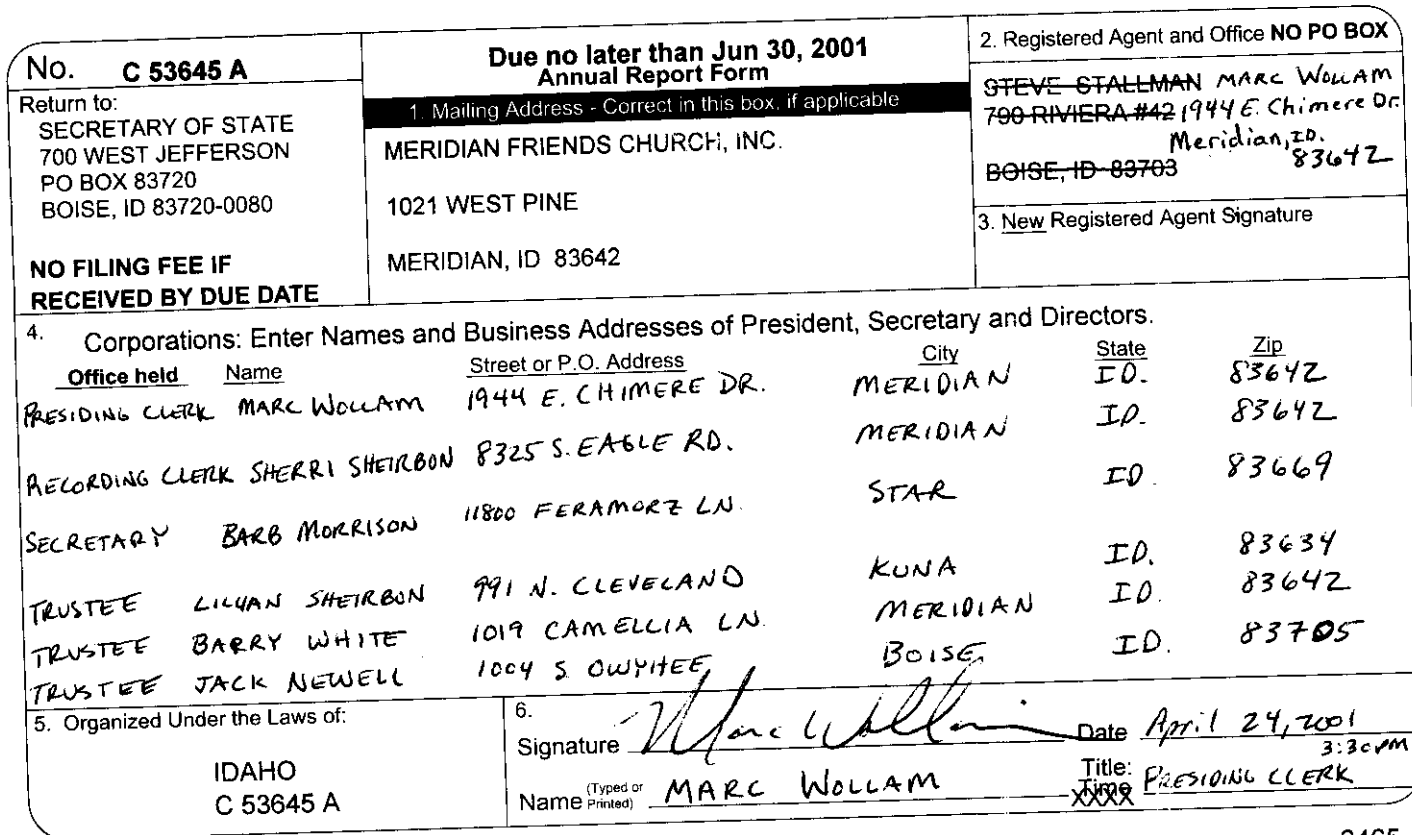 No. C 53645 A
Return to:
SECRETARY OF STATE
700 WEST JEFFERSON
PO BOX 83720
BOISE, ID 83720-0080
NO FILING FEE IF
RECEIVED BY DUE DATE
Due no later than Jun 30, 2001
Annual Report Form
1. Mailing Address - Correct in this box, if applicable
MERIDIAN FRIENDS CHURCH, INC.
1021 WEST PINE
MERIDIAN, ID 83642
2. Registered Agent and Office NO PO BOX
STEVE STALLMAN MARC WOLLAM
790 RIVIERA #42 1944 E. Chimere Dr.
Meridian, ID.
BOISE, ID 83703 83642
3. New Registered Agent Signature
4. Corporations: Enter Names and Business Addresses of President, Secretary and Directors.
Office held Name Street or P.O. Address City State Zip
PRESIDING CLERK MARC WOLLAM 1944 E. CHIMERE DR. MERIDIAN ID. 83642
RECORDING CLERK SHERRI SHEIRBON 8325 S. EAGLE RD. MERIDIAN ID. 83642
SECRETARY BARB MORRISON 11800 FERAMORZ LN. STAR ID. 83669
TRUSTEE LILYAN SHEIRBON 991 N. CLEVELAND KUNA ID. 83634
TRUSTEE BARRY WHITE 1019 CAMELLIA LN. MERIDIAN ID. 83642
TRUSTEE JACK NEWELL 1004 S OWYHEE BOISE ID. 83705
5. Organized Under the Laws of:
IDAHO
C 53645 A
6.
Signature Marc Wollam Date April 24, 2001
3:30 PM
Name (Typed or Printed) MARC WOLLAM Title: PRESIDING CLERK
Time
XXXX